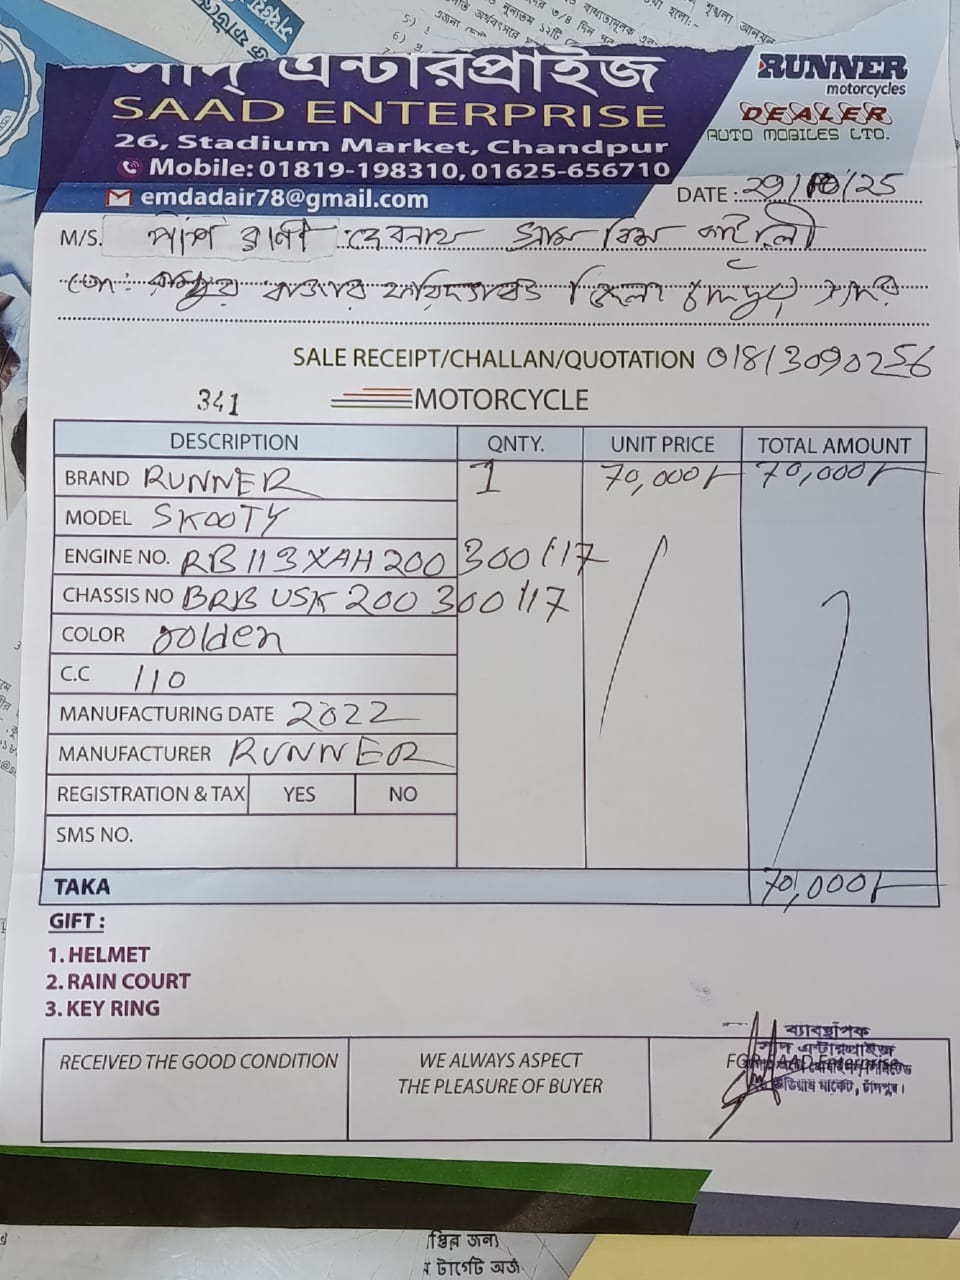 সাদ্ এন্টারপ্রাইজ
SAAD ENTERPRISE
26, Stadium Market, Chandpur
Mobile: 01819-198310, 01625-656710
emdadair78@gmail.com
RUNNER
motorcycles
DEALER
AUTO MOBILES LTD.
DATE : 29/10/25
M/S. রাণী দেবনাথ গ্রাম
বাজার ফরিদগঞ্জ জেলা চাঁদপুর সদর
SALE RECEIPT/CHALLAN/QUOTATION 01813090256
341 MOTORCYCLE
DESCRIPTION QNTY. UNIT PRICE TOTAL AMOUNT
BRAND RUNNER 1 70,000/- 70,000/-
MODEL SKOOTY
ENGINE NO. RB113XAH200300117
CHASSIS NO BRBUSK200300117
COLOR Golden
C.C 110
MANUFACTURING DATE 2022
MANUFACTURER RUNNER
REGISTRATION & TAX YES NO
SMS NO.
TAKA 70,000/-
GIFT :
1. HELMET
2. RAIN COURT
3. KEY RING
RECEIVED THE GOOD CONDITION
WE ALWAYS ASPECT
THE PLEASURE OF BUYER
ব্যাবস্থাপক
সাদ এন্টারপ্রাইজ
FOR SAAD Enterprise
ষ্টেডিয়াম মার্কেট, চাঁদপুর।
প্তির জন্য
টার্গেট অর্জ